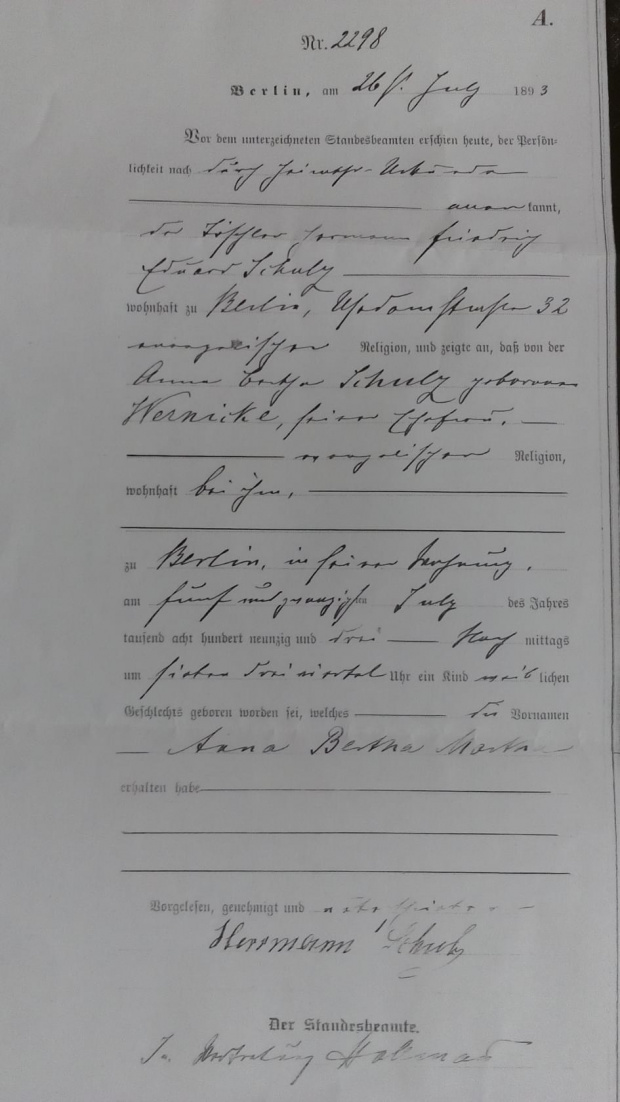 A.
Nr. 2298
Berlin, am 26t. July 1893
Vor dem unterzeichneten Standesbeamten erschien heute, der Persön-
lichkeit nach durch Heiraths-Urkunde
anerkannt,
der Tischler Hermann Friedrich
Eduard Schulz
wohnhaft zu Berlin, Usedomstraße 32
evangelischer Religion, und zeigte an, daß von der
Anna Bertha Schulz geborenen
Wernicke, seiner Ehefrau,
evangelischer Religion,
wohnhaft bei ihm,
zu Berlin, in seiner Wohnung,
am fünf und zwanzigsten July des Jahres
tausend acht hundert neunzig und drei Nachmittags
um sieben dreiviertel Uhr ein Kind weiblichen
Geschlechts geboren worden sei, welches die Vornamen
Anna Bertha Martha
erhalten habe
Vorgelesen, genehmigt und unterschrieben
Herrmann Schulz
Der Standesbeamte.
In Vertretung